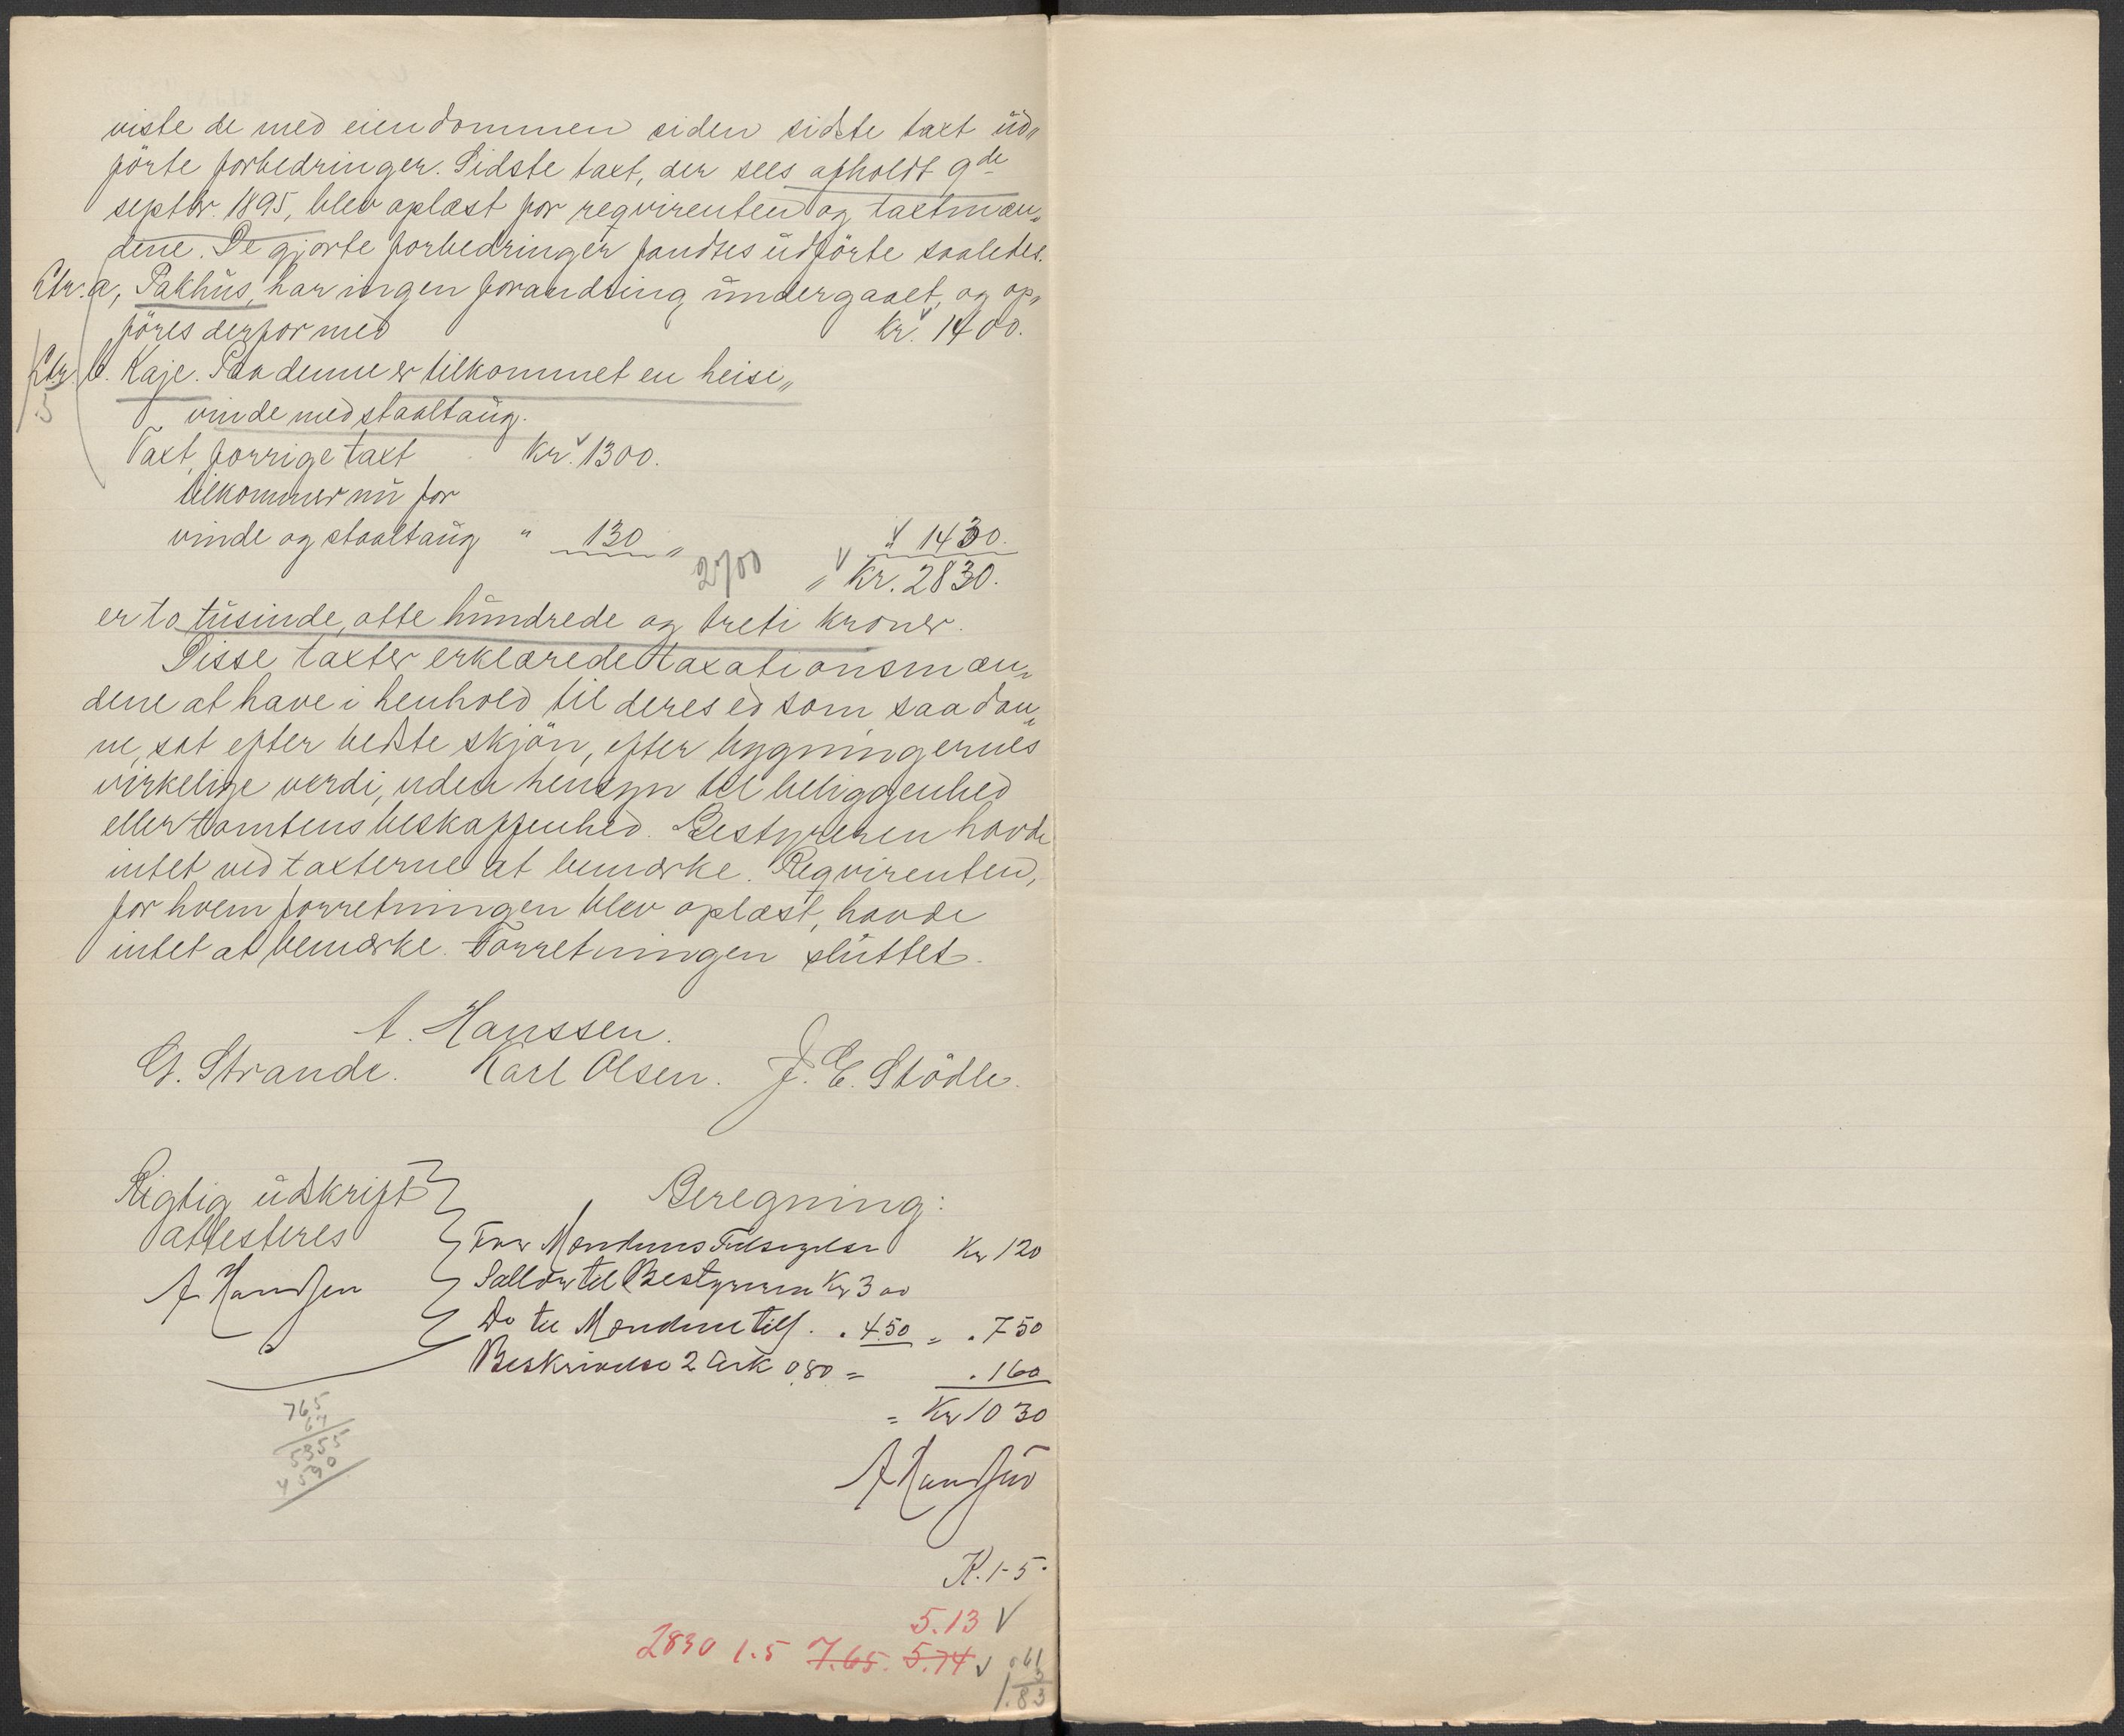 viste de med eiendommen siden sidste taxt üd„
förte forbedringer. Sidste taxt, der sees afholdt 9de
septbr. 1895, blev oplæst for reqvirenten og taxtmæn„
dene. De gjorte forbedringer fandtes üdförte saaledes.
Ltr. a, Pakhüs, har ingen forandring ündergaaet, og op„
föres derfor med Kr. 1400.
Ltr. b. Kaje. Paa denne er tilkommet en heise„
vinde med staaltaüg.
Taxt, forrige taxt Kr. 1300.
tilkommer nü for
vinde og staaltaüg " 130 „ " 1430.
2700 „ Kr. 2830.
er to tüsinde, otte hündrede og treti kroner.
Disse taxter erklærede taxationsmæn„
dene at have i henhold til deres ed som saadan„
ne, sat efter bedste skjön, efter bygningernes
virkelige verdi, uden hensyn til beliggenhed
eller tomtens beskaffenhed. Bestyreren havde
intet ved taxterne at bemærke. Reqvirenten,
for hvem forretningen blev oplæst, havde
intet at bemærke. Forretningen slüttet.
A. Hanssen.
G. Strande. Karl Olsen. J. E. Stödle.
Rigtig üdskrift
attesteres
A Hanssen
Beregning:
For Mændenes Tilsigelse Kr 1 20
Sallær til Bestyreren Kr 3 00
Do til Mændene tils. . 4.50 = . 7 50
Beskrivelse 2 Ark 0,80 = . 1 60
= Kr 10 30
A Hanssen
765
67
5355
4590
K. 1-5.
5.13 V
2830 1.5 7.65. 5.74 V
.61
3
1.83